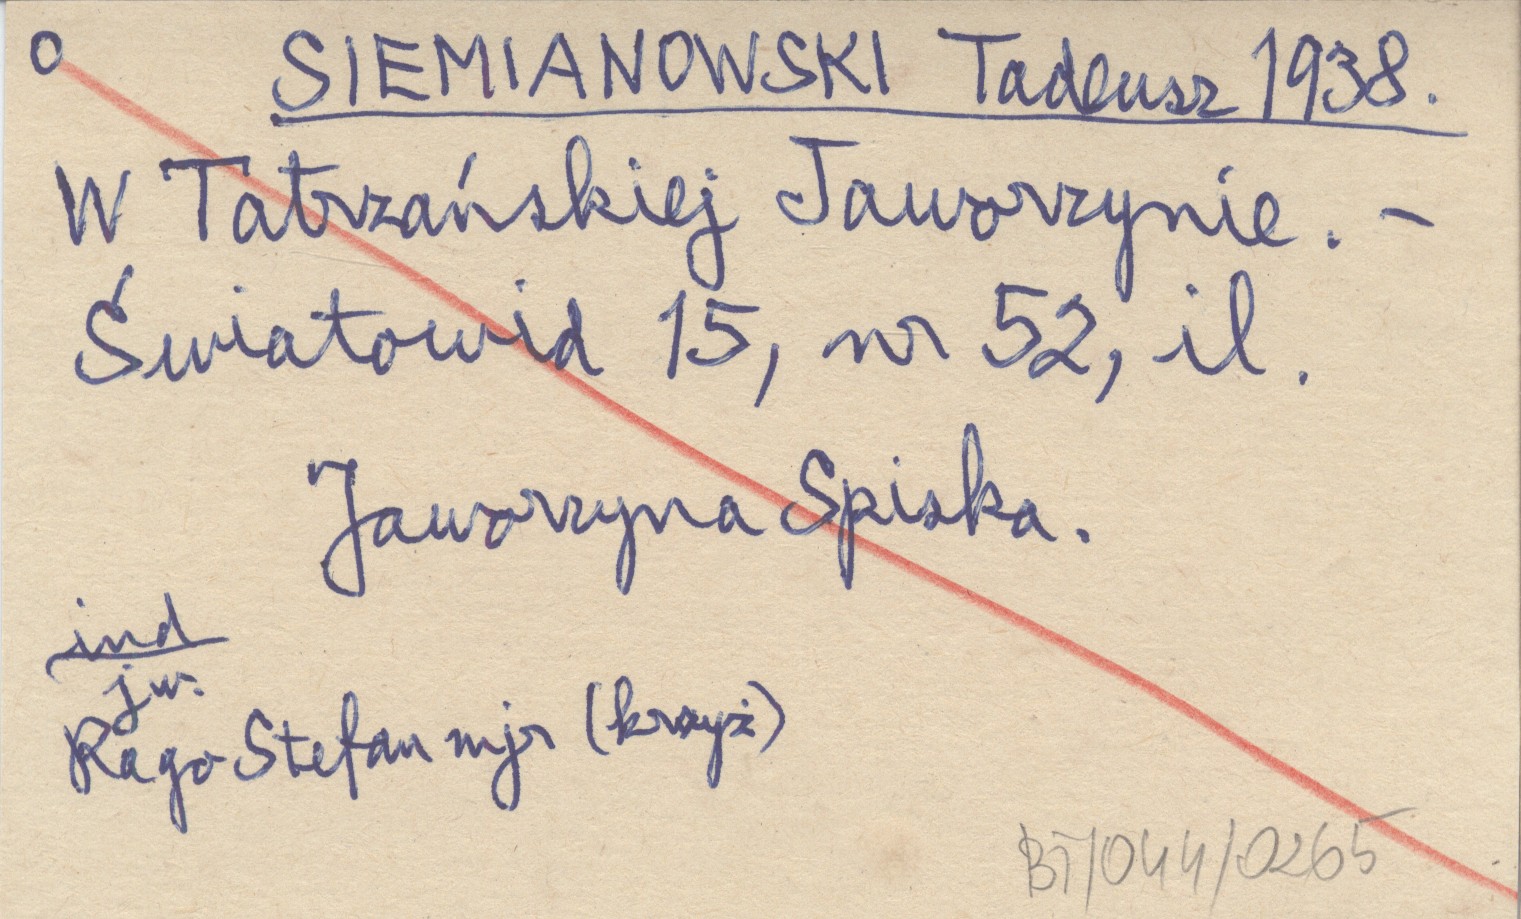 o SIEMIANOWSKI Tadeusz 1938.
W Tatrzańskiej Jaworzynie. -
Światowid 15, nr 52, il.
Jaworzyna Spiska.
ind
jw.
Rago Stefan mjr (krzyż)
BT/044/0265